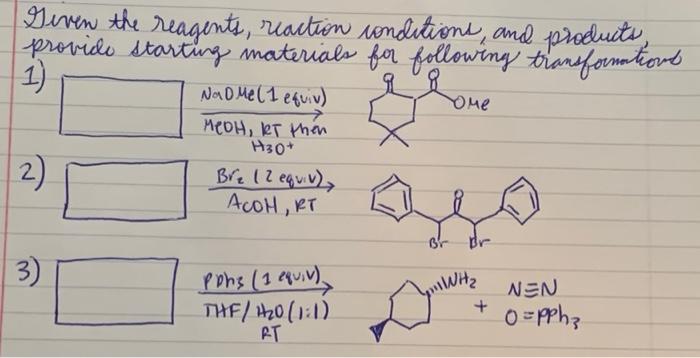 Given the reagents, reaction conditions, and products,
provide starting materials for following transformations
1)
NaOMe (1 equiv)
MeOH, RT then
H3O+
O
O
OMe
2)
Br2 (2 equiv)
AcOH, RT
O
Br Br
3)
PPh3 (1 equiv)
THF/H2O (1:1)
RT
NH2
+
N≡N
O=PPh3